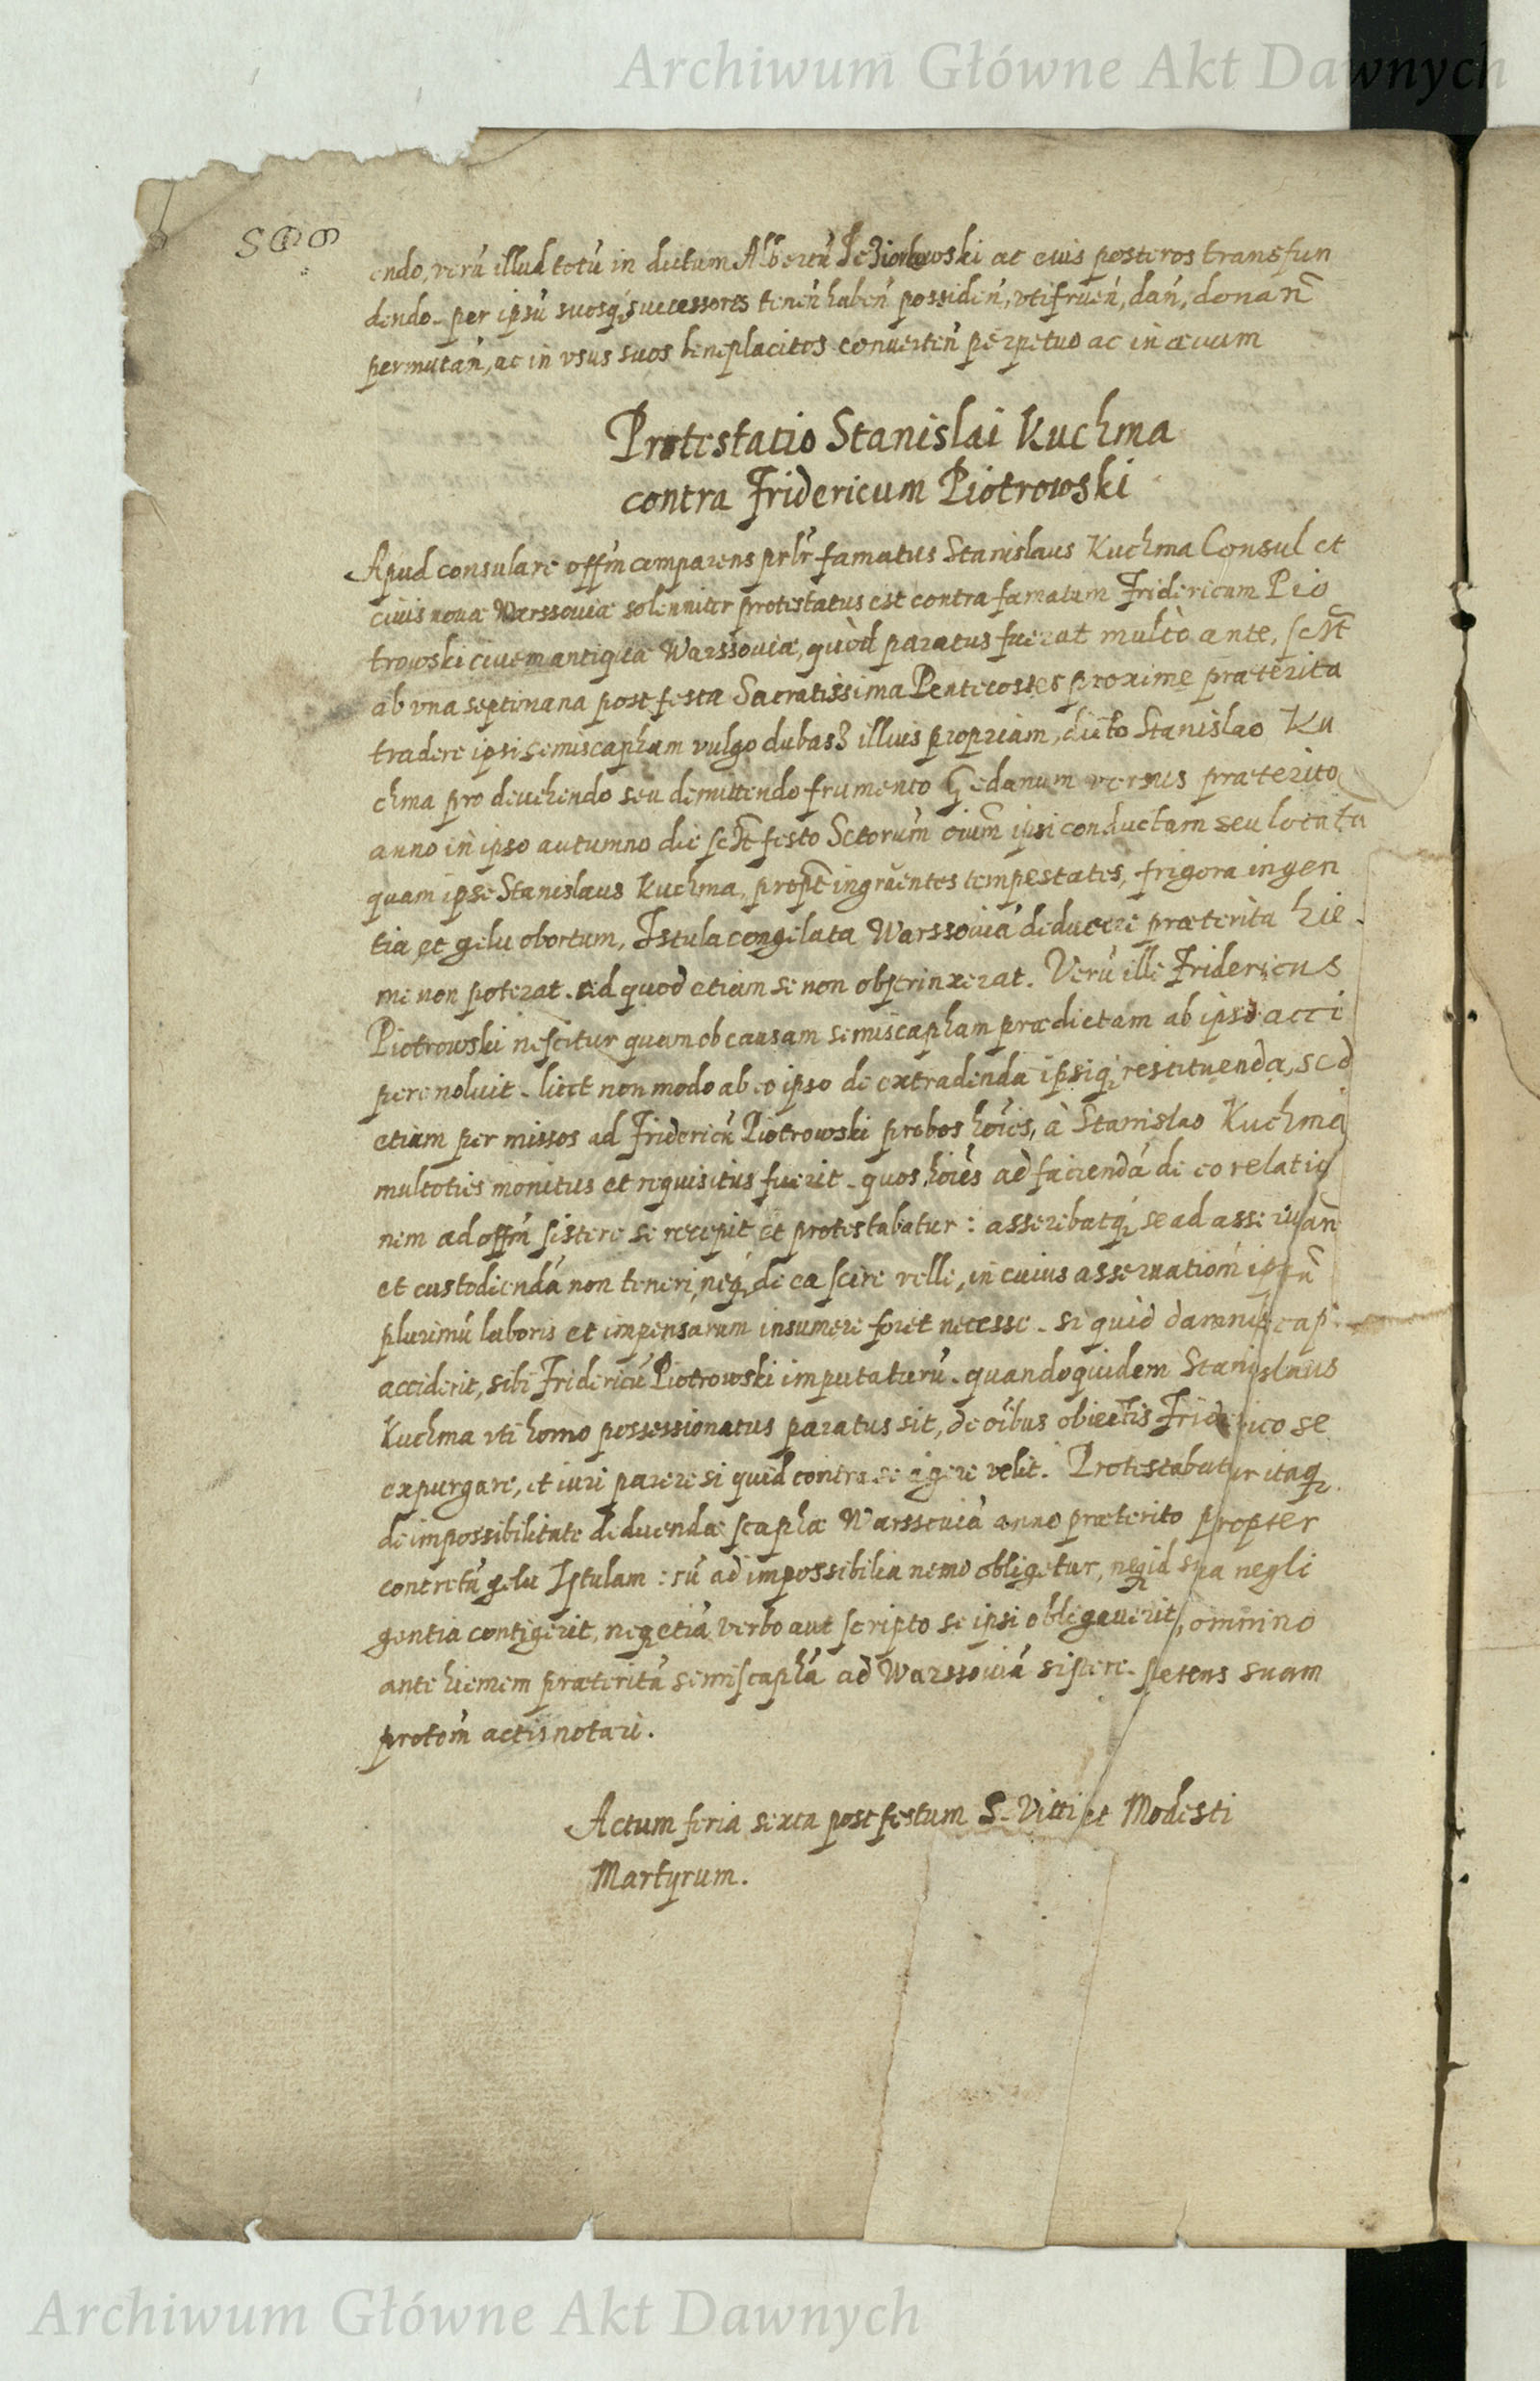 Archiwum Główne Akt Dawnych
endo, verú illud totú in dictum Albertú Jeziorkowski ac eius posteros transfun
dendo. per ipsú suosq successores teneń habeń possideń, vtifrueń, dań, donań
permutań, ac in vsus suos beneplacitos conuerteń perpetuo ac in æuum
Protestatio Stanislai Kuchma
contra Fridericum Piotrowski
Apud consulare offm comparens prlr famatus Stanislaus Kuchma Consul et
ciuis nouæ Warssouiæ solenniter protestatus est contra famatum Fridericum Pio
trowski ciuem antiquæ Warssouiæ, quòd paratus fuerat multò ante, sclt
ab vna septimana post festa Sacratissima Pentecostes proxime præterita
tradere ipsi semiscapham vulgo dubasz illius propriam, dicto Stanislao Ku
chma pro deuehendo seu demittendo frumento Gedanum versus præterito
anno in ipso autumno die sclt festo Sctorum oium ipsi conductam seu locatā
quam ipse Stanislaus Kuchma, propt ingruentes tempestates, frigora ingen
tia et gelu obortum, Istula congelata Warssouiá deducere præterita hie
me non poterat. ad quod etiam se non obstrinxerat. Verú ille Fridericus
Piotrowski nescitur quam ob causam semiscapham prædictam ab ipso acci
pere noluit. licet non modo ab eo ipso de extradenda ipsiq restituenda, sed
etiam per missos ad Fridericú Piotrowski probos hoíes, à Stanislao Kuchma
multoties monitus et requisitus fuerit. quos hoíes ad faciendá de eo relatio
nem ad offm sistere se recepit et protestabatur: asserebatq se ad asseruań
et custodiendá non teneri, neq de ea scire velle, in cuius asseruatiom ipsum
plurimú laboris et impensarum insumere foret necesse. si quid damni scap.
acciderit, sibi Fridericú Piotrowski imputaturú. quandoquidem Stanislaus
Kuchma vti homo possessionatus paratus sit, de oibus obiectis Friderico se
expurgare, et iuri parere si quid contra se agere velit. Protestabatur itaq
de impossibilitate deducendæ scaphæ Warssouiá anno præterito propter
concretú gelu Istulam: cú ad impossibilia nemo obligetur, neq id sua negli
gentia contigerit, neq etiá verbo aut scripto se ipsi obligauerit, omnino
ante hiemem præteritá semiscaphá ad Warssouiá sistere. petens suam
protom actis notari.
Actum feria sexta post festum S. Viti et Modesti
Martyrum.
Archiwum Główne Akt Dawnych